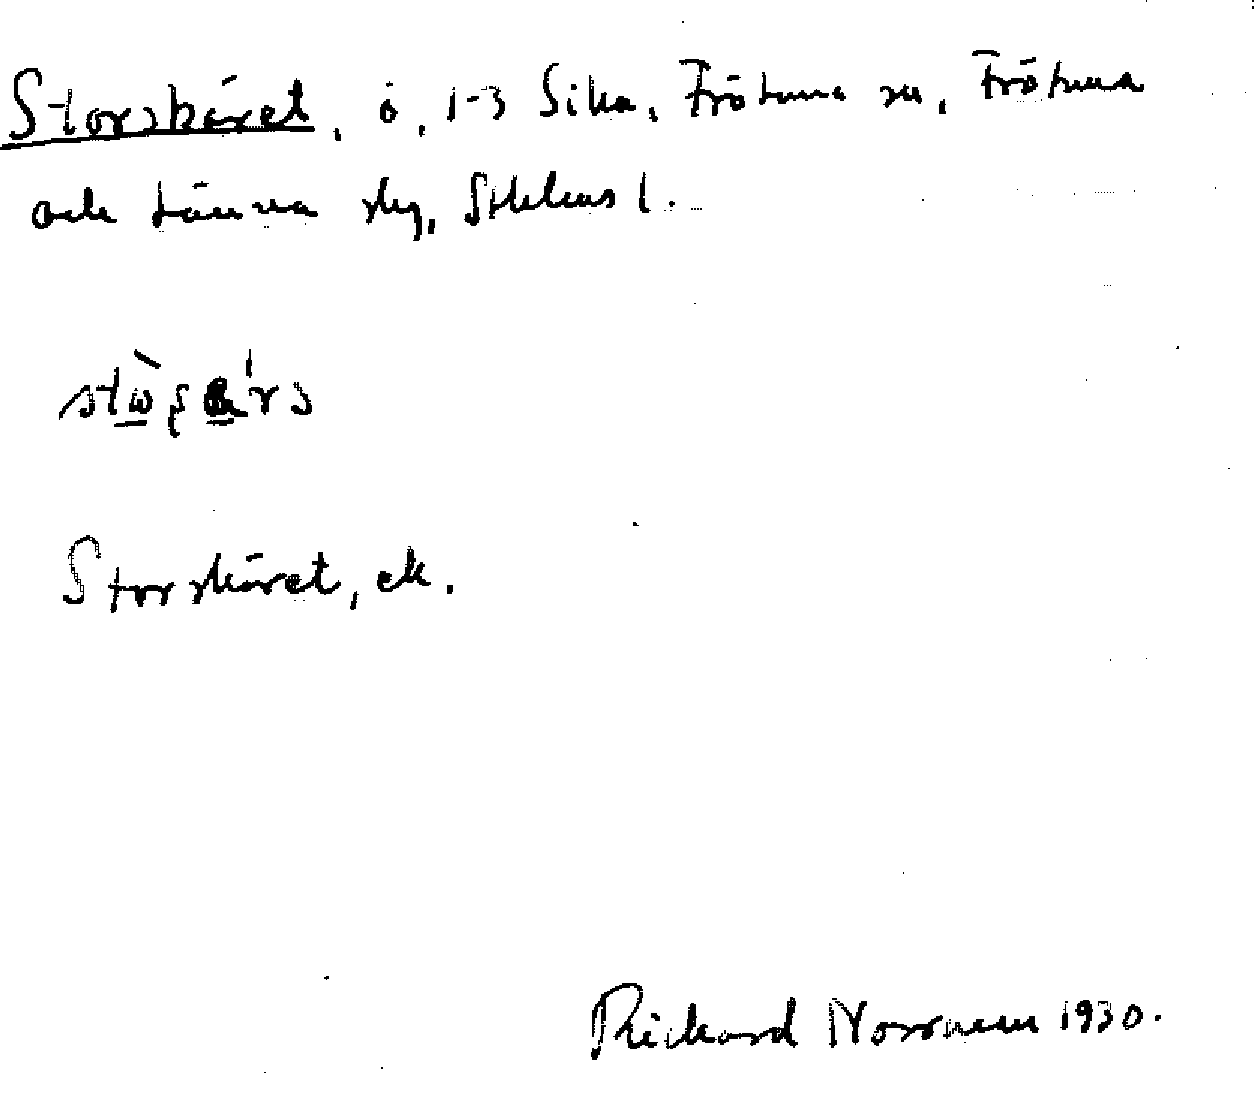 Storskäret, ö, 1-3 Sika, Frötuna sn, Frötuna
och Länna skg, Sthlms l.
Storskäret, ek.
Rickard Norrman 1930.